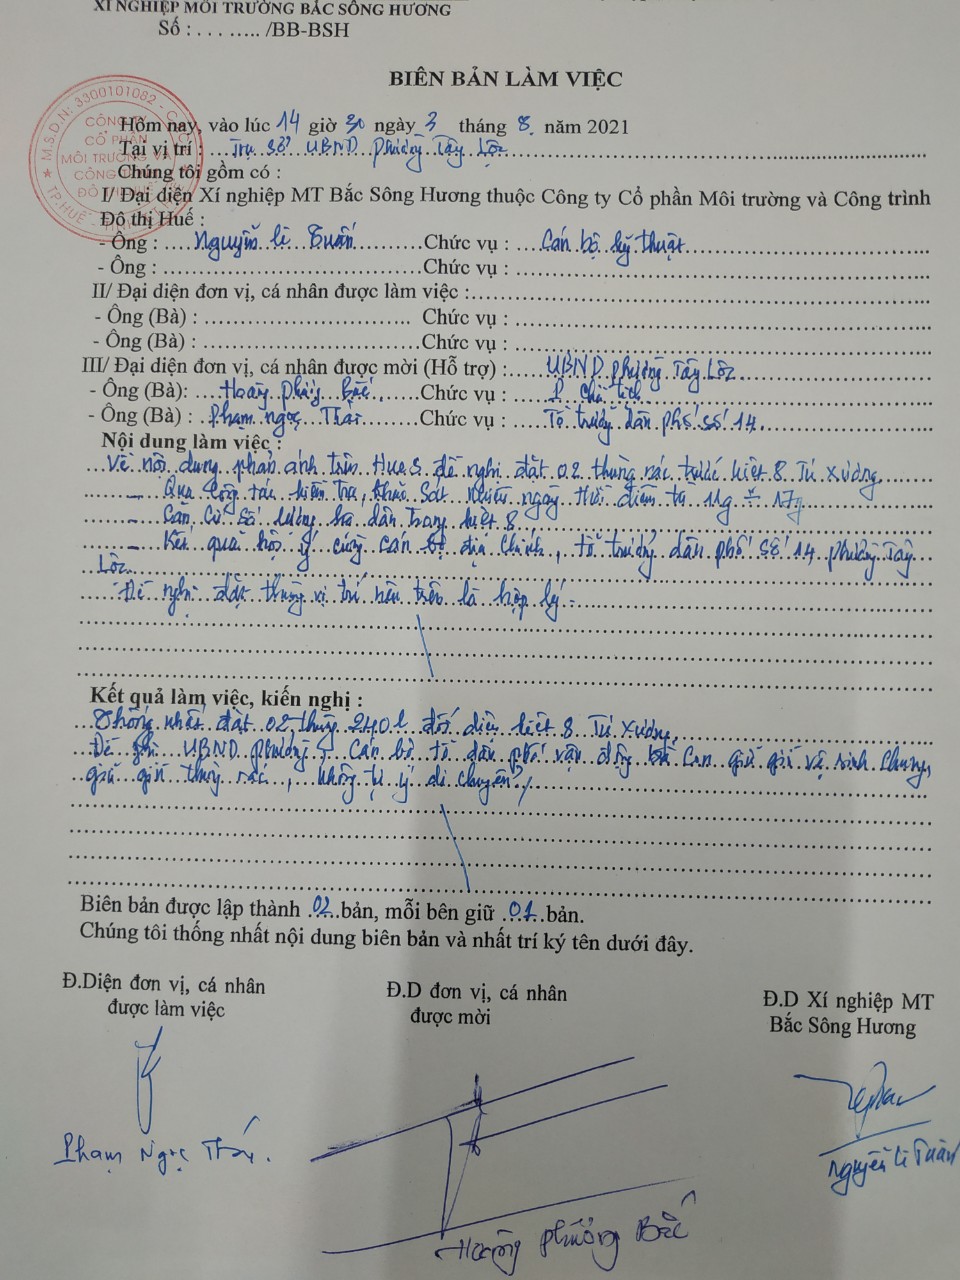 XÍ NGHIỆP MÔI TRƯỜNG BẮC SÔNG HƯƠNG
Số : . . . ..... /BB-BSH
BIÊN BẢN LÀM VIỆC
M.S.D.N: 3300101082 - C.T.C.P
CÔNG TY
CỔ PHẦN
MÔI TRƯỜNG VÀ
CÔNG TRÌNH
ĐÔ THỊ HUẾ
TP.HUẾ
Hôm nay, vào lúc 14 giờ 30 ngày 3 tháng 8. năm 2021
Tại vị trí : Trụ sở UBND phường Tây Lộc
Chúng tôi gồm có :
I/ Đại diện Xí nghiệp MT Bắc Sông Hương thuộc Công ty Cổ phần Môi trường và Công trình
Đô thị Huế :
- Ông : Nguyễn Lê Tuấn Chức vụ : Cán bộ kỹ thuật
- Ông : Chức vụ :
II/ Đại diện đơn vị, cá nhân được làm việc :
- Ông (Bà) : Chức vụ :
- Ông (Bà) : Chức vụ :
III/ Đại diện đơn vị, cá nhân được mời (Hỗ trợ) : UBND phường Tây Lộc
- Ông (Bà): Hoàng Phương Bắc Chức vụ : P. Chủ tịch
- Ông (Bà) : Phạm Ngọc Thái Chức vụ : Tổ trưởng dân phố số 14.
Nội dung làm việc :
Về nội dung phản ánh trên Hue S đề nghị đặt 02 thùng rác trước kiệt 8 Tú Xương
- Qua công tác kiểm tra, khảo sát nhiều ngày thời điểm từ 11g ÷ 17g
- Căn cứ số lượng hộ dân trong kiệt 8
- Kết quả hội ý cùng cán bộ địa chính, tổ trưởng dân phố số 14 phường Tây
Lộc
Đề nghị đặt thùng vị trí nêu trên là hợp lý
Kết quả làm việc, kiến nghị :
Thống nhất đặt 02 thùng 240l đối diện kiệt 8 Tú Xương,
Đề nghị UBND phường, cán bộ tổ dân phố vận động bà con giữ gìn vệ sinh chung,
giữ gìn thùng rác, không tự ý di chuyển /
Biên bản được lập thành 02 bản, mỗi bên giữ 01 bản.
Chúng tôi thống nhất nội dung biên bản và nhất trí ký tên dưới đây.
Đ.Diện đơn vị, cá nhân
được làm việc
Đ.D đơn vị, cá nhân
được mời
Đ.D Xí nghiệp MT
Bắc Sông Hương
Phạm Ngọc Thái.
Hoàng Phương Bắc
Nguyễn Lê Tuấn